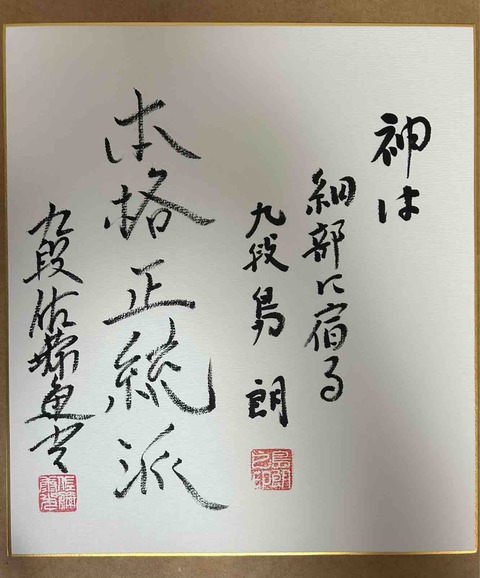 神は
細部に宿る
九段 島 朗
本格正統派
九段 佐藤康光